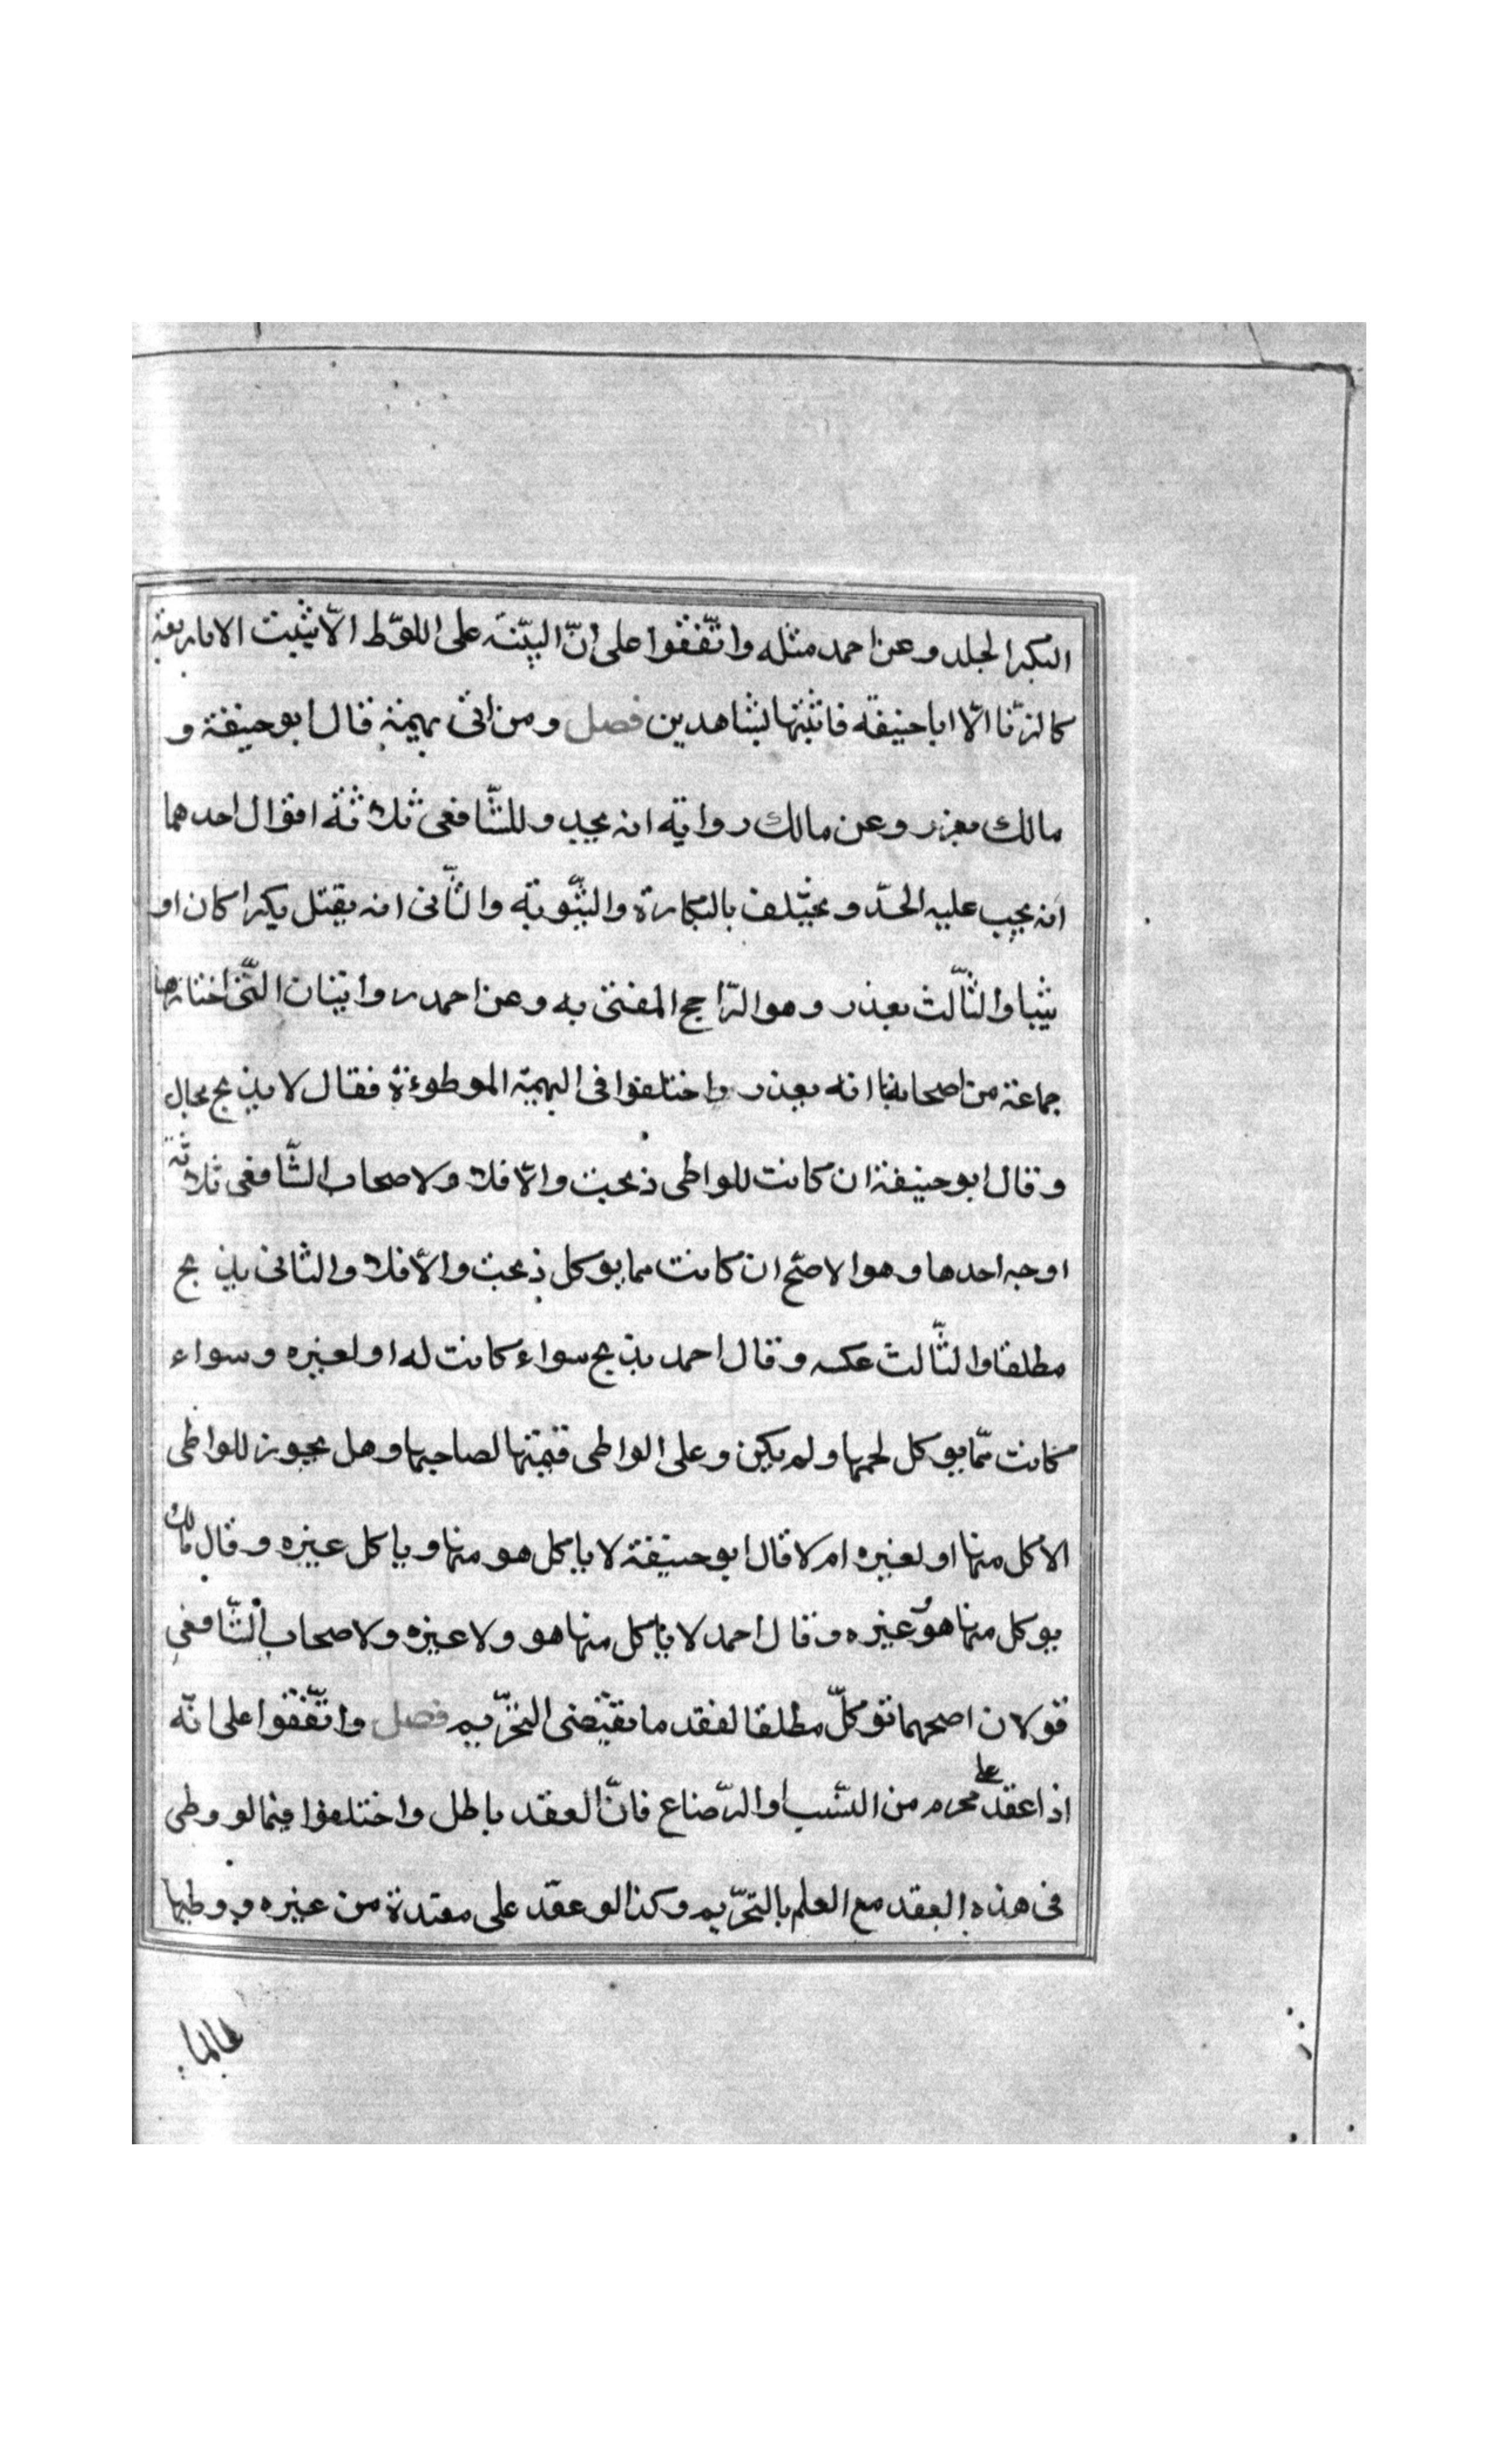 البكر الجلد وعن احمد مثله واتّفقوا على انّ البيّنة على اللوّط الّا يثبت الا باربعة
كالزّنا الّا ابا حنيفة فاثبتها بشاهدين فصل ومن اتى بهيمة قال ابو حنيفة و
مالك يعزر وعن مالك رواية انه يجد وللشّافعى ثلاثة اقوال احدهما
انه يجب عليه الحدّ ويختلف بالبكارة والثّيوبة والثّانى انه يقتل بكرا كان او
ثيبا والثّالث يعذر وهو الرّاجح المفتى به وعن احمد روايتان الّتى اختارها
جماعة من اصحابنا انه يعذر واختلفوا فى البهيمة الموطوءة فقال لا يذبح بحال
وقال ابو حنيفة ان كانت للواطى ذبحت والّا فلا ولاصحاب الشّافعى ثلاثة
اوجه احدها وهو الاصّح ان كانت مما يوكل ذبحت والّا فلا والثانى يذبح
مطلقا والثّالث عكسه وقال احمد يذبح سواء كانت له او لغيره وسواء
كانت ممّا يوكل لحمها ولم يكن وعلى الواطى قيمتها لصاحبها وهل يجوز للواطى
الاكل منها او لغيره ام لا قال ابو حنيفة لا ياكل هو منها وياكل غيره وقال مالك
يوكل منها هو وغيره وقال احمد لا ياكل منها هو ولا غيره ولاصحاب الشّافعى
قولان اصحهما توكلّ مطلقا لفقد ما يقتضى التحرّيم فصل واتّفقوا على انّه
اذا عقد على محرم من النّسب او الرّضاع فانّ العقد باطل واختلفوا فيما لو وطى
فى هذه العقد مع العلم بالتحرّيم وكذا لو عقد على معتدة من غيره ووطيها
عالما